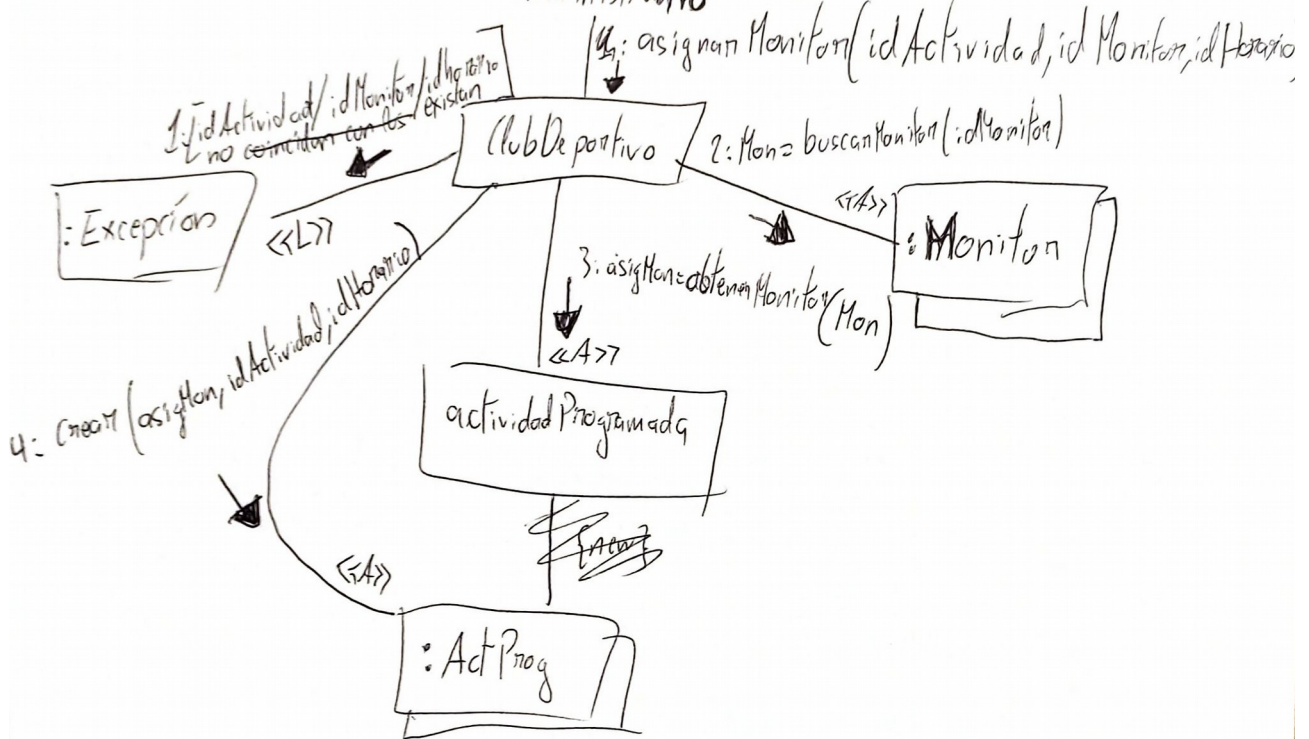 : asignarMonitor(idActividad, idMonitor, idHorario
1: [idActividad/idMonitor/idhorario
no coincidan con los existan
ClubDeportivo
2: Mon= buscarMonitor(idMonitor)
:Excepción
<<L>>
<<A>>
:Monitor
3: asigMon=obtenerMonitor(Mon)
<<A>>
4: crear(asigMon, idActividad, idHorario)
actividadProgramada
{new}
<<A>>
:ActProg